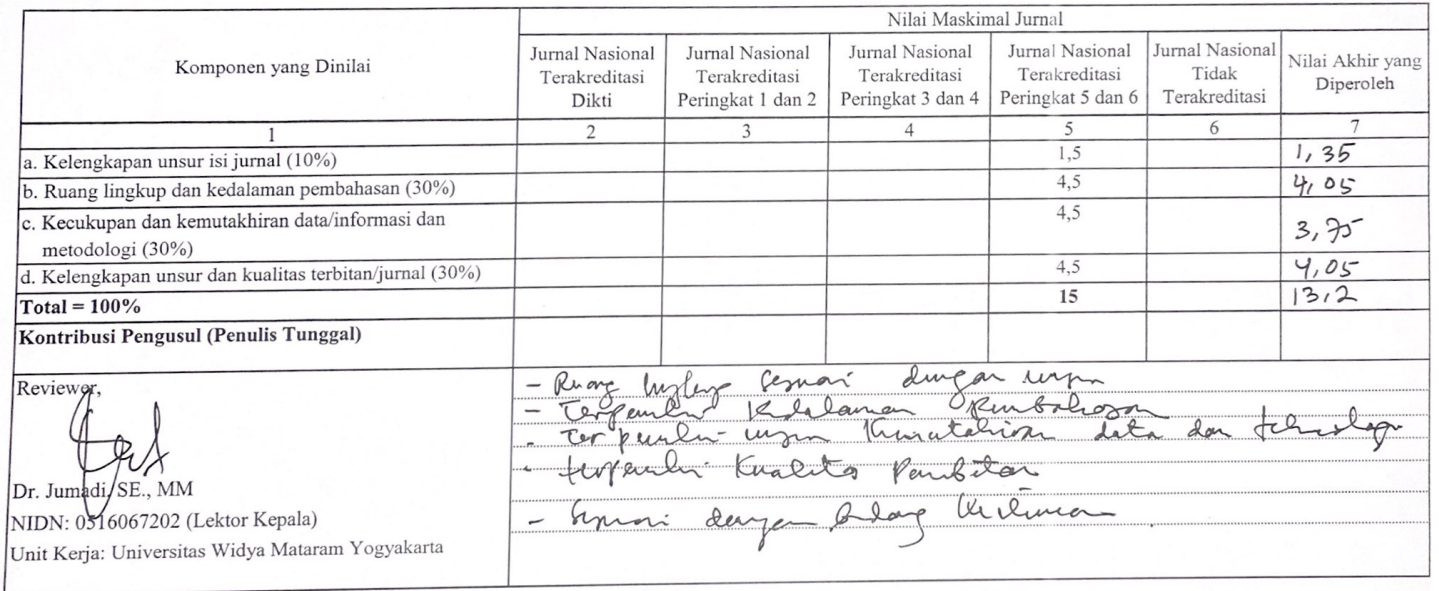 Komponen yang Dinilai
Nilai Maskimal Jurnal
Jurnal Nasional Terakreditasi Dikti
Jurnal Nasional Terakreditasi Peringkat 1 dan 2
Jurnal Nasional Terakreditasi Peringkat 3 dan 4
Jurnal Nasional Terakreditasi Peringkat 5 dan 6
Jurnal Nasional Tidak Terakreditasi
Nilai Akhir yang Diperoleh
1 2 3 4 5 6 7
a. Kelengkapan unsur isi jurnal (10%) 1,5 1,35
b. Ruang lingkup dan kedalaman pembahasan (30%) 4,5 4,05
c. Kecukupan dan kemutakhiran data/informasi dan 4,5
metodologi (30%) 3,75
d. Kelengkapan unsur dan kualitas terbitan/jurnal (30%) 4,5 4,05
Total = 100% 15 13,2
Kontribusi Pengusul (Penulis Tunggal)
Reviewer,
Dr. Jumadi, SE., MM
NIDN: 0516067202 (Lektor Kepala)
Unit Kerja: Universitas Widya Mataram Yogyakarta
- Ruang lingkup sesuai dengan
- Terpenuhi Kedalaman Pembahasan
- terpenuhi Kemutahiran data dan
- terpenuhi Kualitas
- Sesuai dengan bidang